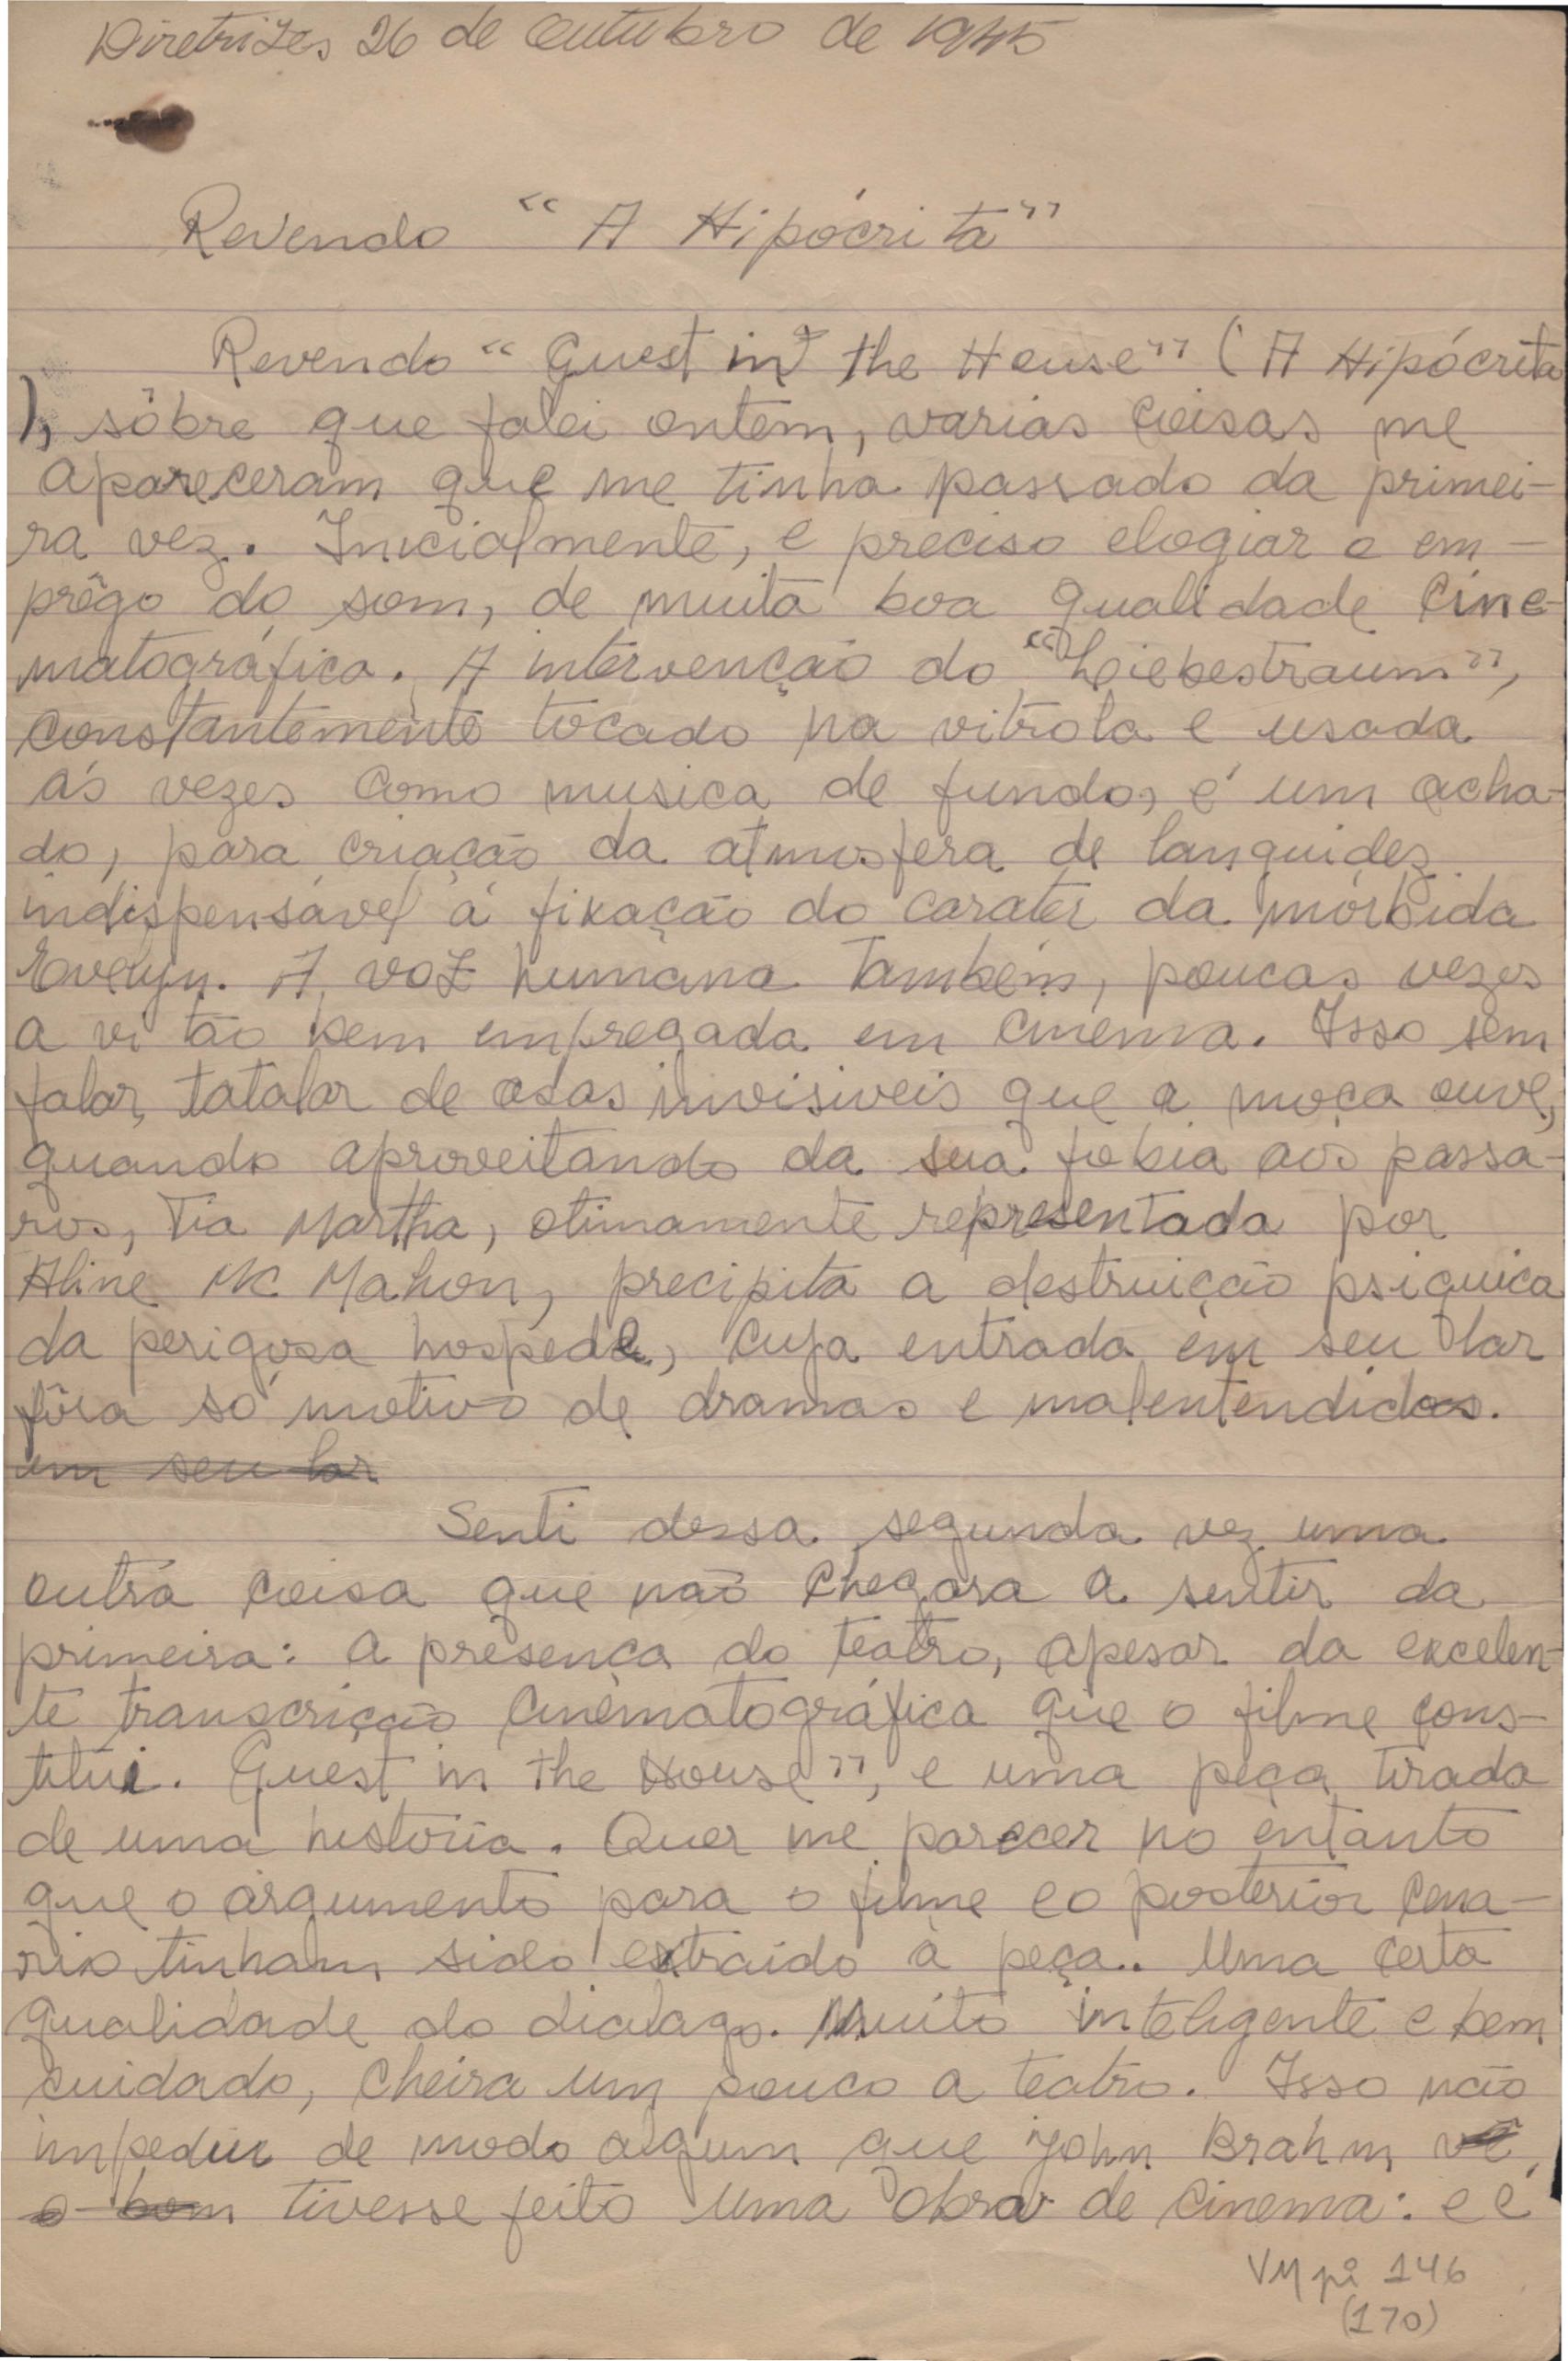 Diretrizes 26 de outubro de 1945
Revendo "A Hipócrita"
Revendo "Guest in the House" (A Hipócrita
), sôbre que falei ontem, varias coisas me
apareceram que me tinha passado da primei-
ra vez. Inicialmente, e preciso elogiar o em-
prêgo do som, de muita boa qualidade cine-
matográfica. A intervenção do "Liebestraum",
constantemente tocado na vitrola e usada
ás vezes como musica de fundo, é um acha-
do, para criação da atmosfera de languidez
indispensável á fixação do carater da mórbida
Evelyn. A voz humana também, poucas vezes
a vi tão bem empregada em cinema. Isso sem
falar, tatalar de asas invisiveis que a moça ouve,
quando aproveitando da sua fobia aos passa-
ros, Tia Martha, otimamente representada por
Aline Mc Mahon, precipita a destruição psiquica
da perigosa hospede, cuja entrada em seu lar
fôra só motivo de dramas e malentendidos.
em seu lar
Senti dessa segunda vez uma
outra coisa que não chegara a sentir da
primeira: a presença do teatro, apesar da excelen-
te transcrição cinematográfica que o filme cons-
titui. Guest in the House", e uma peça tirada
de uma historia. Quer me parecer no entanto
que o argumento para o filme e o posterior cena-
rio tinham sido extraído á peça.. Uma certa
qualidade do dialago. Muito inteligente e bem
cuidado, cheira um pouco a teatro. Isso não
impediu de modo algum que john Brahm ve
o bom tivesse feito uma obra de cinema: e é
VM pi 146
(170)